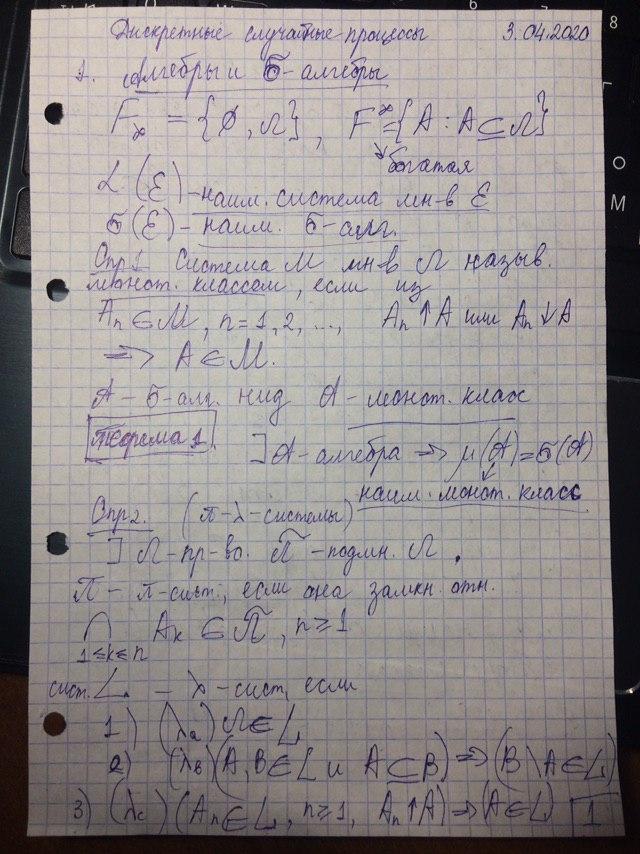 Дискретные случайные процессы 3.04.2020
1. Алгебры и σ-алгебры
F_* = {∅, Ω}, F^* = {A : A ⊆ Ω}
богатая
α(ℰ) - наим. система мн-в ℰ
σ(ℰ) - наим. σ-алг.
Опр 1 Система M мн-в Ω назыв.
монот. классом, если из
Aₙ ∈ M, n = 1, 2, ..., Aₙ ↑ A или Aₙ ↓ A
⇒ A ∈ M.
𝒜 - σ-алг. нид 𝒜 - монот. класс
Теорема 1 ] 𝒜 - алгебра ⇒ μ(𝒜) = σ(𝒜)
наим. монот. класс
Опр 2. (π-λ-системы)
] Ω - пр-во. П - подмн. Ω.
П - π-сист., если она замкн. отн.
⋂ Aₖ ∈ П, n ≥ 1
1≤k≤n
сист. L - λ-сист, если
1) (λa) Ω ∈ L
2) (λb) (A, B ∈ L и A ⊆ B) ⇒ (B \ A ∈ L)
3) (λc) (Aₙ ∈ L, n ≥ 1, Aₙ ↑ A) ⇒ (A ∈ L) 1
8
O
M